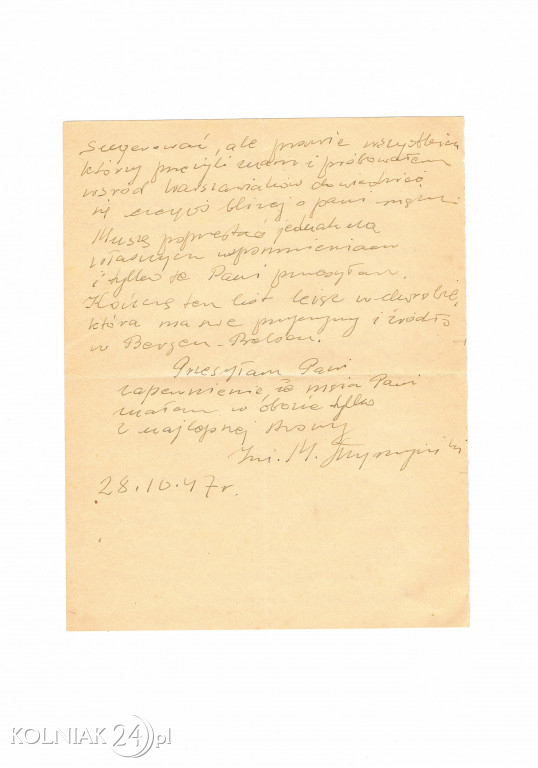 ale prawie wszystkich
którzy przeżyli znam i próbowałem
wśród Warszawiaków dowiedzieć
się czegoś bliżej o pani mężu.
Muszę poprzestać jednak na
własnych wspomnieniach
i tylko te Pani przesyłam.
Kończę ten list leżąc w chorobie,
która ma swe przyczyny i źródło
w Bergen-Belsen.
Przesyłam Pani
zapewnienie, że męża Pani
znałem w obozie tylko
z najlepszej strony
Inż. M.
28.10.47r.
KOLNIAK24.pl